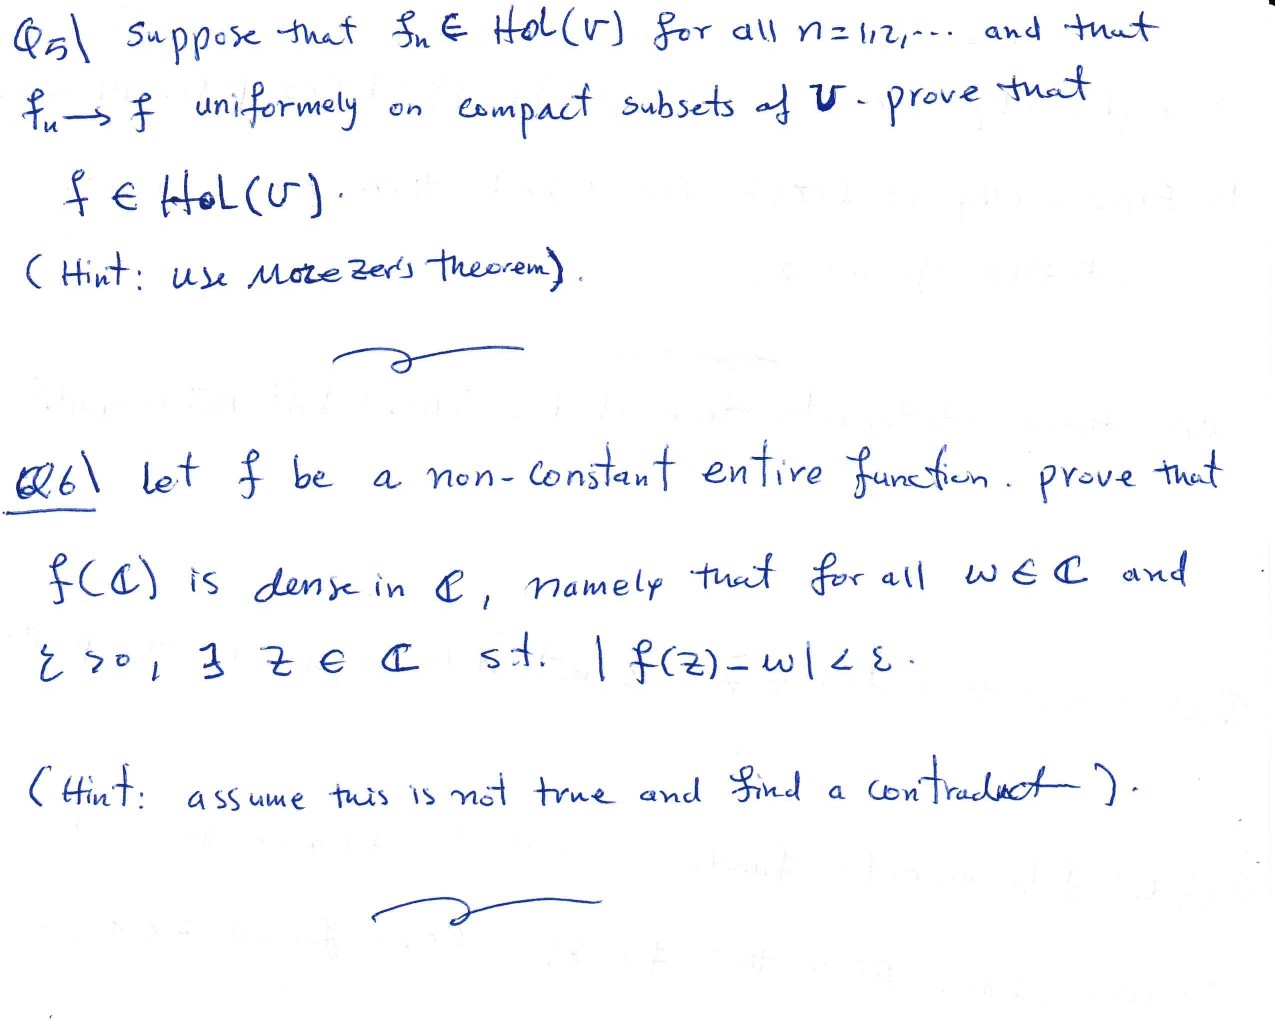 Q5\ Suppose that fn ∈ Hol(U) for all n=1,2,... and that
fn → f uniformely on compact subsets of U. prove that
f ∈ HoL(U).
(Hint: use Morezer's theorem).
Q6\ let f be a non-constant entire function. prove that
f(ℂ) is dense in ℂ, namely that for all w ∈ ℂ and
ε>0, ∃ z ∈ ℂ s.t. |f(z)-w|<ε.
(Hint: assume this is not true and find a contraduct).